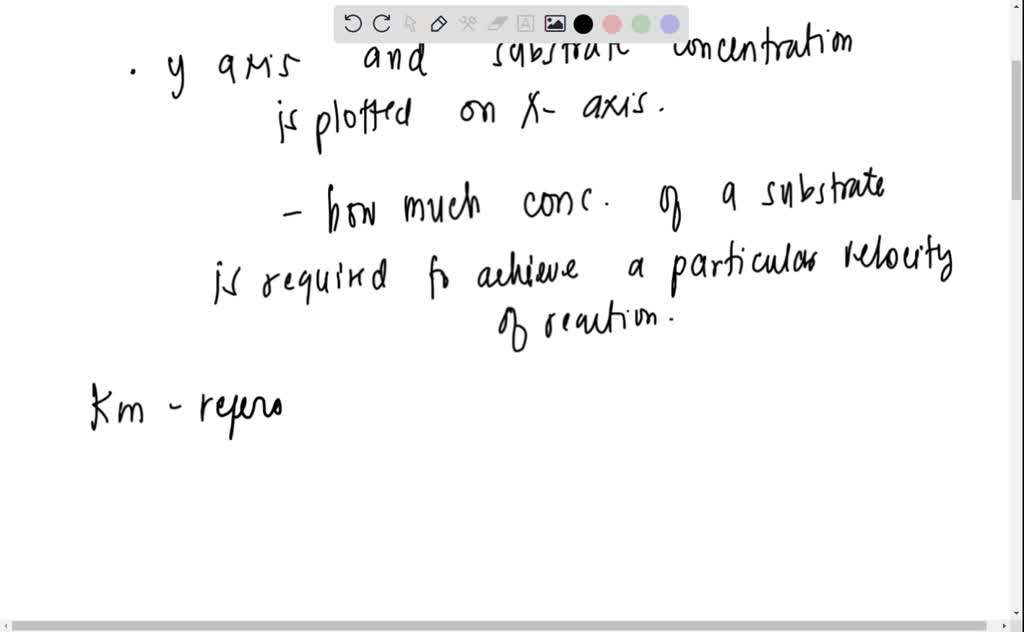 . y axis and substrate concentration
is plotted on X- axis.
- how much conc. of a substrate
is required to achieve a particular velocity
of reaction.
Km - refers